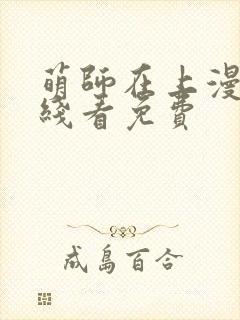 萌師在上漫
綫看免費
成島百合